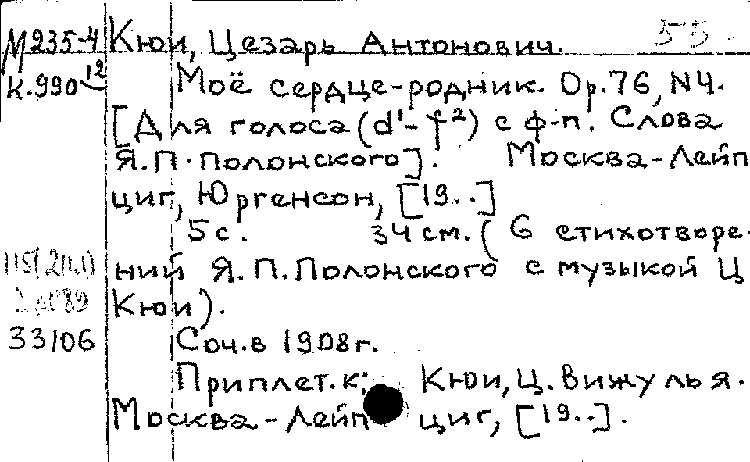 М235-4 Кюи, Цезарь Антонович. 55
К.990-12 Моё сердце-родник. Op.76, N4.
[Для голоса (d'-f²) с ф-п. Слова
Я.П. Полонского]. Москва-Лейп
циг, Юргенсон, [19..]
5 с. 34 см. (6 стихотворе-
ний Я.П. Полонского с музыкой Ц
Кюи).
33/06
Соч. в 1908 г.
Приплет. к: Кюи, Ц. Вижу ль я.
Москва-Лейп циг, [19..].